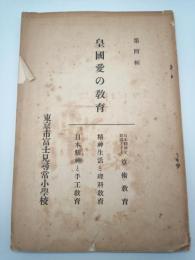 第四輯
皇國愛の敎育
藝術敎育
精神生活と理科敎育
日本精神と手工敎育
東京市富士見尋常小學校